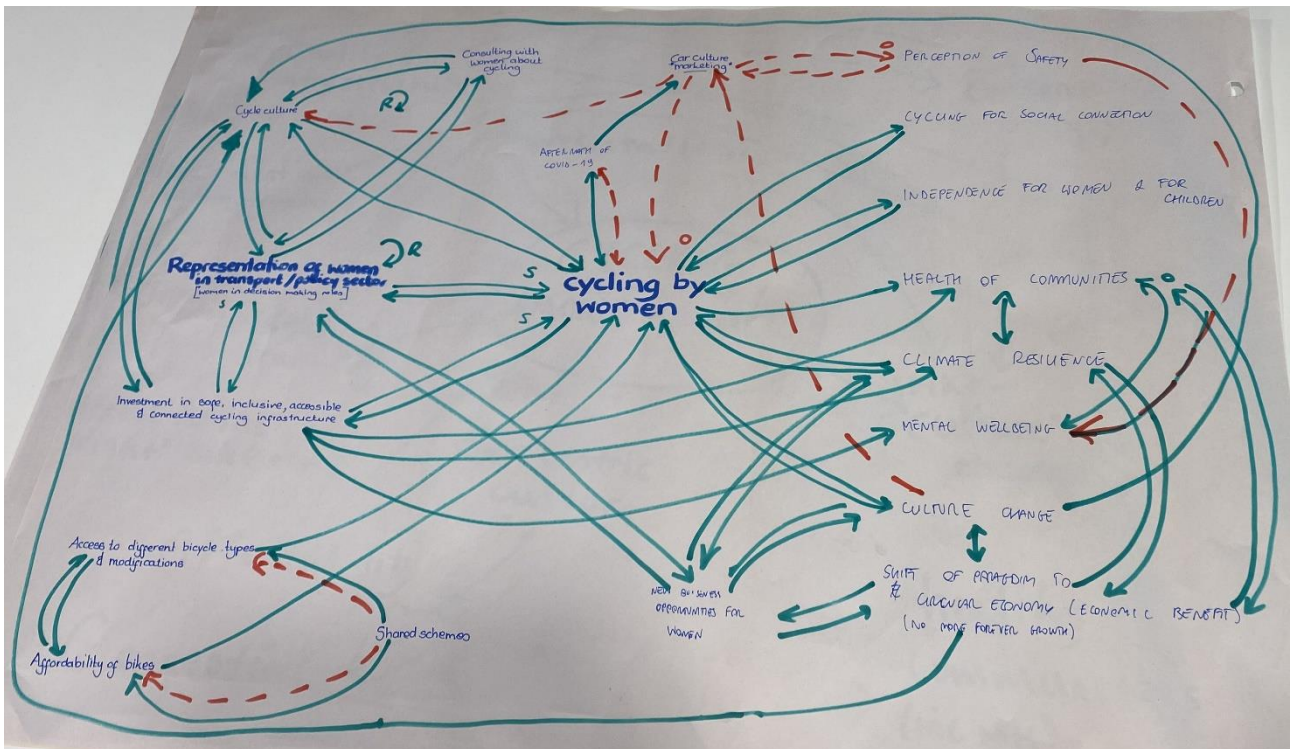 Consulting with
women about
cycling
Car culture
"marketing"
O
PERCEPTION OF
SAFETY
Cycle culture
R
CYCLING FOR SOCIAL CONNECTION
AFTERMATH OF
COVID-19
INDEPENDENCE FOR WOMEN & FOR
CHILDREN
Representation of women
in transport/policy sector
[women in decision making roles]
R
S
O
S
cycling by
women
S
HEALTH OF COMMUNITIES
O
CLIMATE RESILIENCE
Investment in safe, inclusive, accessible
& connected cycling infrastructure
MENTAL WELLBEING
CULTURE CHANGE
Access to different bicycle types
& modifications
SHIFT OF PARAGDIM TO
CIRCULAR ECONOMY (ECONOMIC BENEFIT)
(NO MORE FOREVER GROWTH)
NEW BUSINESS
OPPORTUNITIES FOR
WOMEN
Shared schemes
Affordability of bikes